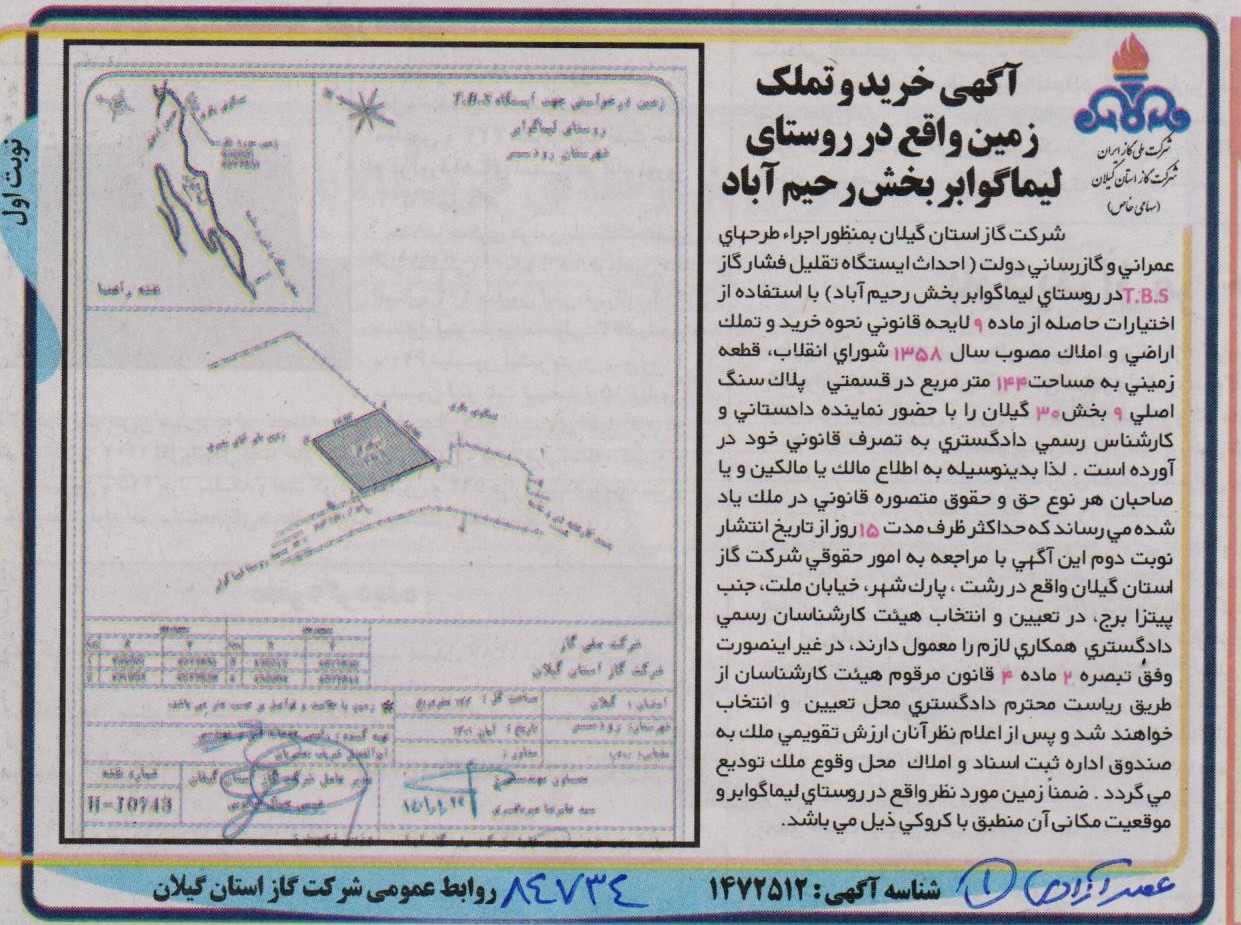 نوبت اول
شرکت ملی گاز ایران
شرکت گاز استان گیلان
(سهامی خاص)
آگهی خرید و تملک
زمین واقع در روستای
لیماگوابر بخش رحیم آباد
شرکت گاز استان گیلان بمنظور اجراء طرحهاي
عمراني و گازرساني دولت ( احداث ایستگاه تقلیل فشار گاز
T.B.S در روستاي لیماگوابر بخش رحیم آباد) با استفاده از
اختیارات حاصله از ماده ۹ لایحه قانوني نحوه خرید و تملك
اراضي و املاك مصوب سال ۱۳۵۸ شوراي انقلاب، قطعه
زمیني به مساحت ۱۴۴ متر مربع در قسمتي پلاك سنگ
اصلي ۹ بخش ۳۰ گیلان را با حضور نماینده دادستاني و
کارشناس رسمي دادگستري به تصرف قانوني خود در
آورده است . لذا بدینوسیله به اطلاع مالك یا مالکین و یا
صاحبان هر نوع حق و حقوق متصوره قانوني در ملك یاد
شده مي رساند که حداکثر ظرف مدت ۱۵ روز از تاریخ انتشار
نوبت دوم این آگهي با مراجعه به امور حقوقي شرکت گاز
استان گیلان واقع در رشت ، پارك شهر، خیابان ملت، جنب
پیتزا برج، در تعیین و انتخاب هیئت کارشناسان رسمي
دادگستري همکاري لازم را معمول دارند، در غیر اینصورت
وفق تبصره ۲ ماده ۴ قانون مرقوم هیئت کارشناسان از
طریق ریاست محترم دادگستري محل تعیین و انتخاب
خواهند شد و پس از اعلام نظر آنان ارزش تقویمي ملك به
صندوق اداره ثبت اسناد و املاك محل وقوع ملك تودیع
مي گردد . ضمناً زمین مورد نظر واقع در روستاي لیماگوابر و
موقعیت مکانی آن منطبق با کروکي ذیل مي باشد.
زمین درخواستی جهت ایستگاه T.B.S
روستای لیماگوابر
شهرستان رودسر
نقشه راهنما
شرکت ملی گاز
شرکت گاز استان گیلان
استان : گیلان
شهرستان: رودسر
تاریخ : آبان ۱۴۰۱
شماره نقشه
H-10743
عصر آزادی ۱
شناسه آگهی : ۱۴۷۲۵۱۲
۸۴۷۳۴
روابط عمومی شرکت گاز استان گیلان